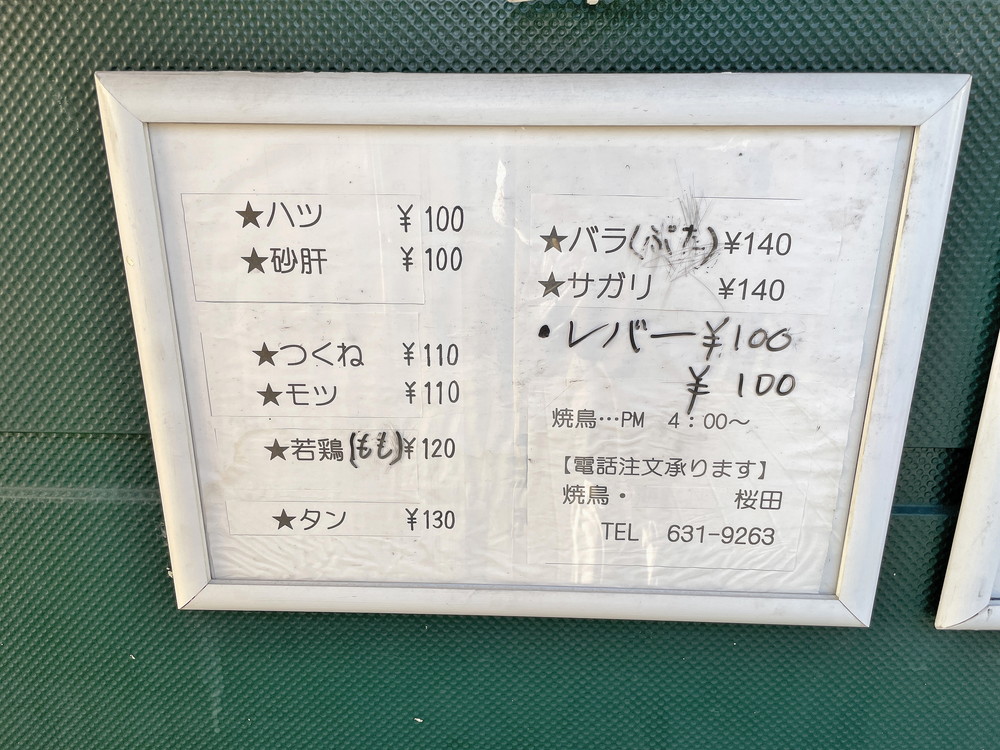 ★ハツ ¥100
★砂肝 ¥100
★つくね ¥110
★モツ ¥110
★若鶏(もも)¥120
★タン ¥130
★バラ(ぶた)¥140
★サガリ ¥140
・レバー¥100
¥100
焼鳥…PM 4:00～
【電話注文承ります】
焼鳥・ 桜田
TEL 631-9263